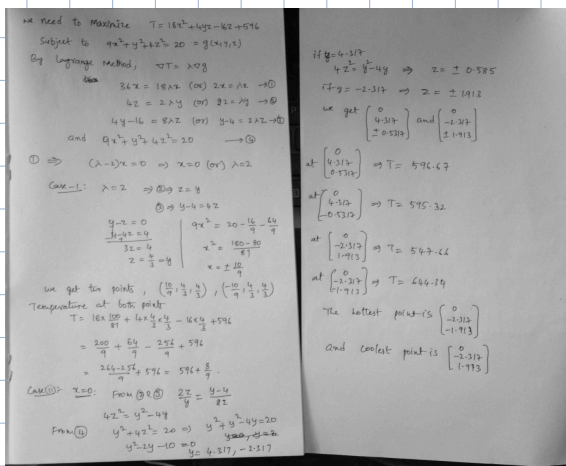 we need to Maximize T = 18x² + 4yz - 16z + 596
Subject to 9x² + y² + 4z² = 20 = g(x,y,z)
By Lagrange Method, ∇T = λ∇g
36x = 18λx (or) 2x = λx → ①
4z = 2λy (or) 2z = λy → ②
4y-16 = 8λz (or) y-4 = 2λz → ③
and 9x² + y² + 4z² = 20 → ④
① ⇒ (λ-2)x = 0 ⇒ x=0 (or) λ=2
Case-1: λ=2 ⇒ ② ⇒ z=y
③ ⇒ y-4=4z
y-z=0
3z=4
z = 4/3 = y
9x² = 20 - 16/9 - 64/9
x² = 180-80/81
x = ± 10/9
we get two points, (10/9, 4/3, 4/3), (-10/9, 4/3, 4/3)
Temperature at both points
T = 18x 100/81 + 4x 4/3 x 4/3 - 16x 4/3 + 596
= 200/9 + 64/9 - 256/9 + 596
= 264-256/9 + 596 = 596 + 8/9.
Case(ii):- x=0: From ② & ③ 2z/y = y-4/2z
4z² = y² - 4y
From ④ y² + 4z² = 20 ⇒ y² + y² - 4y = 20
y² - 2y - 10 = 0
y = 4.317, -2.317
if y = 4.317
4z² = y² - 4y ⇒ z = ± 0.585
if y = -2.317 ⇒ z = ± 1.913
we get (0 4.317 ± 0.5317) and (0 -2.317 ± 1.913)
at (0 4.317 0.5317) ⇒ T = 596.67
at (0 4.317 -0.5317) ⇒ T = 595.32
at (0 -2.317 1.913) ⇒ T = 547.66
at (0 -2.317 -1.913) ⇒ T = 644.34
The hottest point is (0 -2.317 -1.913)
and coolest point is (0 -2.317 1.913)